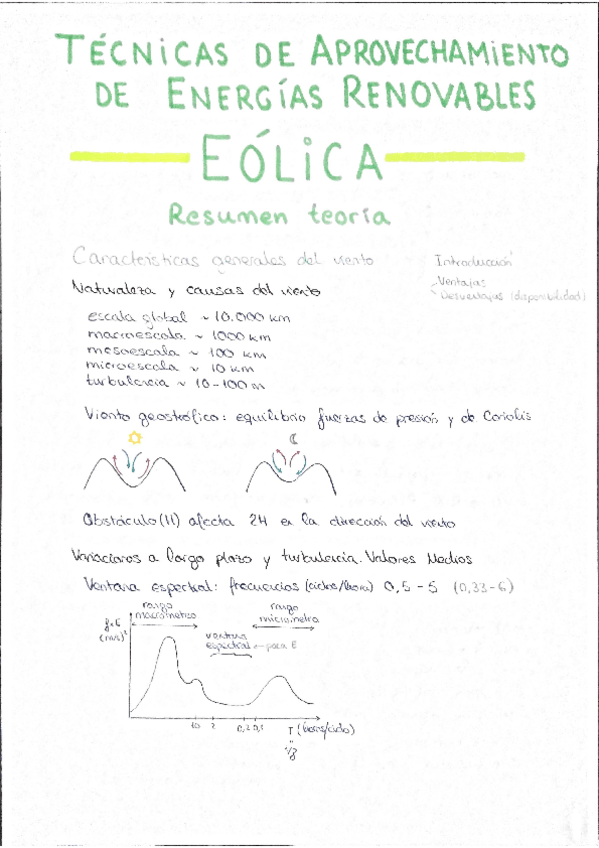 TÉCNICAS DE APROVECHAMIENTO
DE ENERGÍAS RENOVABLES
EÓLICA
Resumen teoría
Características generales del viento
Introducción
Ventajas
Desventajas (disponibilidad)
Naturaleza y causas del viento
escala global ~ 10.000 km
macroescala ~ 1000 km
mesoescala ~ 100 km
microescala ~ 10 km
turbulencia ~ 10-100 m
Viento geostrófico: equilibrio fuerzas de presión y de Coriolis
Obstáculo (H) afecta 2H en la dirección del viento
Variaciones a largo plazo y turbulencia. Valores Medios
Ventana espectral: frecuencias (ciclos/hora) 0,5 - 5 (0,33-6)
rango
macrométrico
rango
micrometro
(m/s)²
ventana
espectral ← para E
10 2 0,2 0,1
T (horas/ciclo)